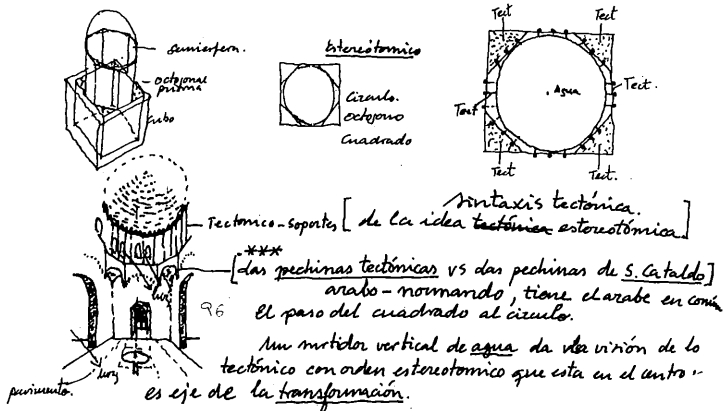 Semiesfera.
octogonal
prisma
cubo
Estereótomico
Circulo.
octógono
cuadrado
Tect
Tect
Agua
Tect.
Tect
Tect
Tect
Tectonico-soportes [ sintaxis tectónica.
de la idea tectónica estereotómica ]
***
[ las pechinas tectónicas vs las pechinas de S. Cataldo ]
arabo-normando, tiene el arabe en común
El paso del cuadrado al circulo.
luz
96
Un surtidor vertical de agua da la visión de lo
tectónico con orden estereotomico que esta en el centro
es eje de la transformación.
pavimento.
luz